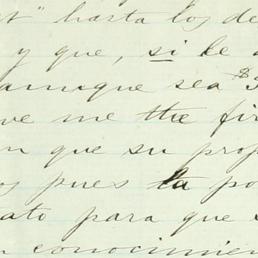 " hasta los de
y que, si le
aunque sea $
ve me the fir
n que su prop
os pues la po
ato para que s
n conocimien